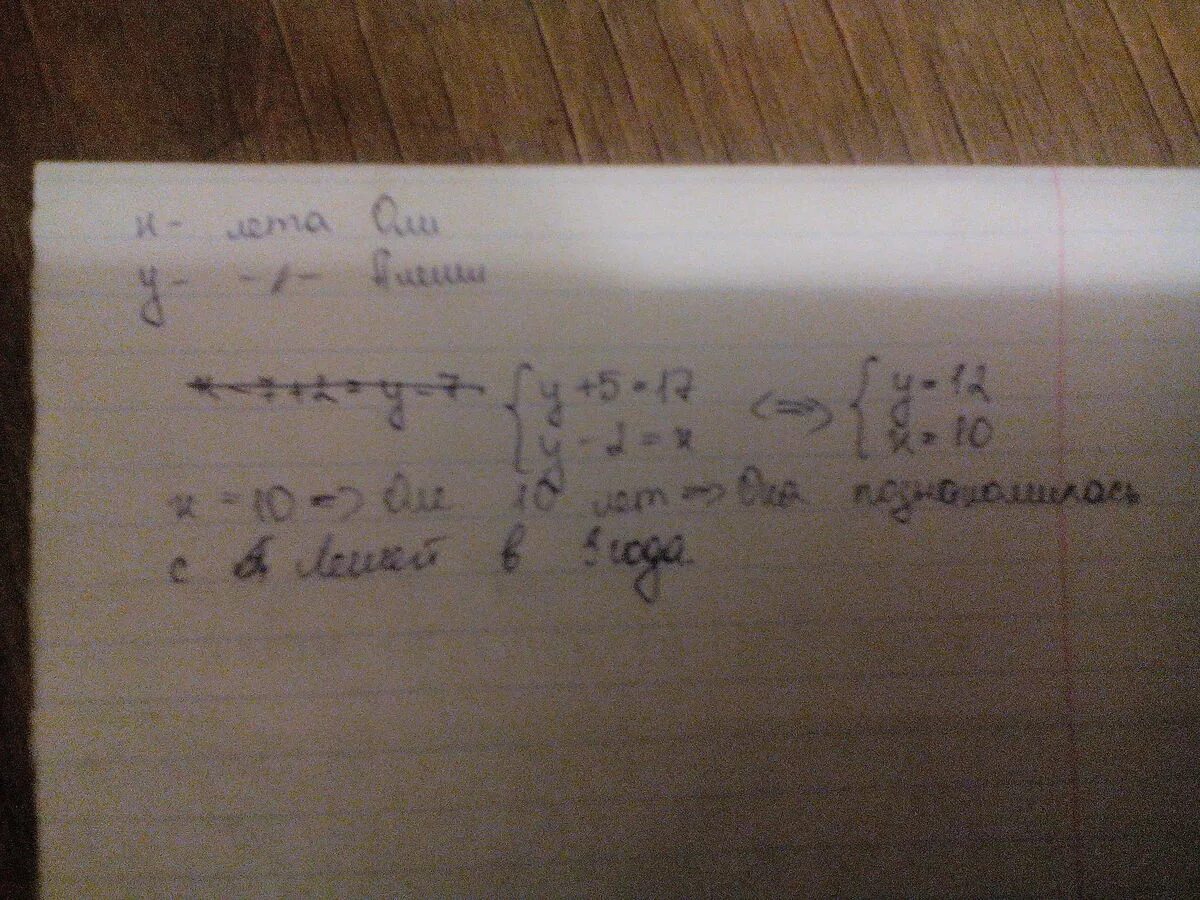 x - лета Оли
y - -//- Алеши
x - 7 + 2 = y - 7 { y + 5 = 17 <=> { y = 12
y - 2 = x x = 10
x = 10 => Оле 10 лет => Она познакомилась
с Лешей в 3 года.